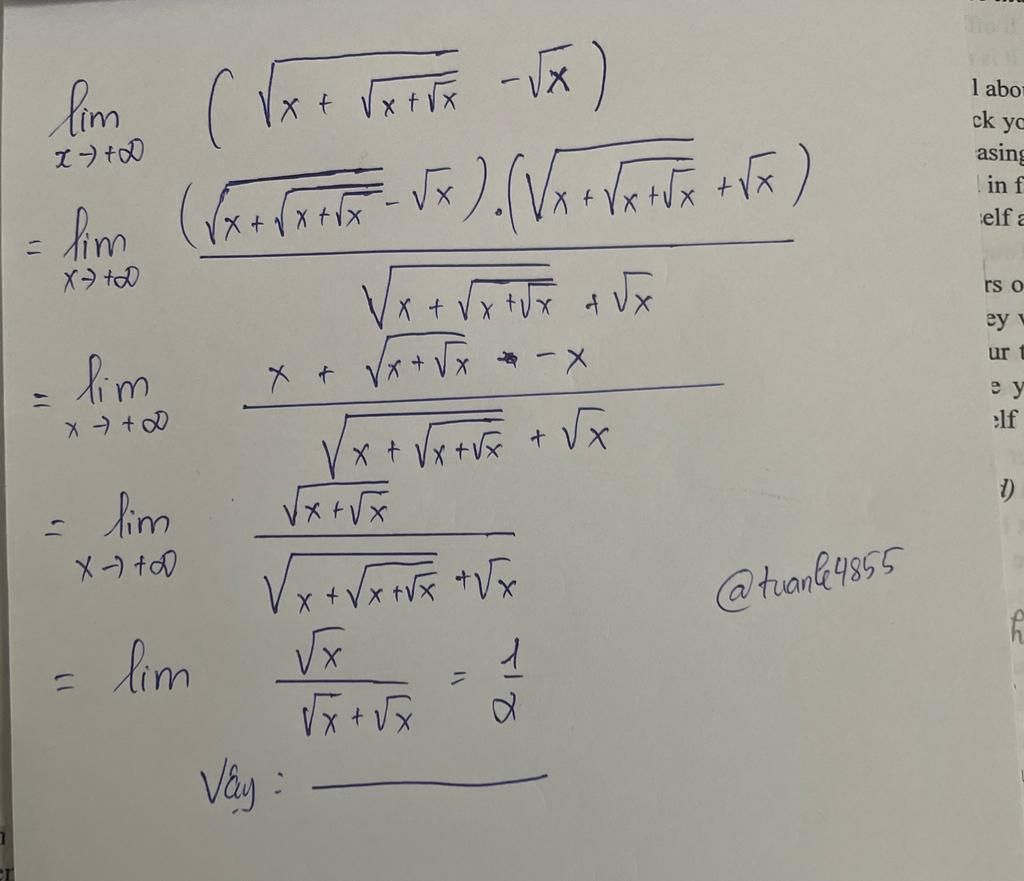 lim x→+∞ ( √(x + √(x+√x)) - √x )
= lim x→+∞ (√(x+√(x+√x)) - √x).(√(x+√(x+√x)) + √x) / (√(x+√(x+√x)) + √x)
= lim x→+∞ (x + √(x+√x) - x) / (√(x+√(x+√x)) + √x)
= lim x→+∞ √(x+√x) / (√(x+√(x+√x)) + √x)
@tuanle4855
= lim √x / (√x + √x) = 1/2
Vậy :
l abou
ck yo
asing
in f
elf a
rs o
ey
ur t
e y
elf
d)